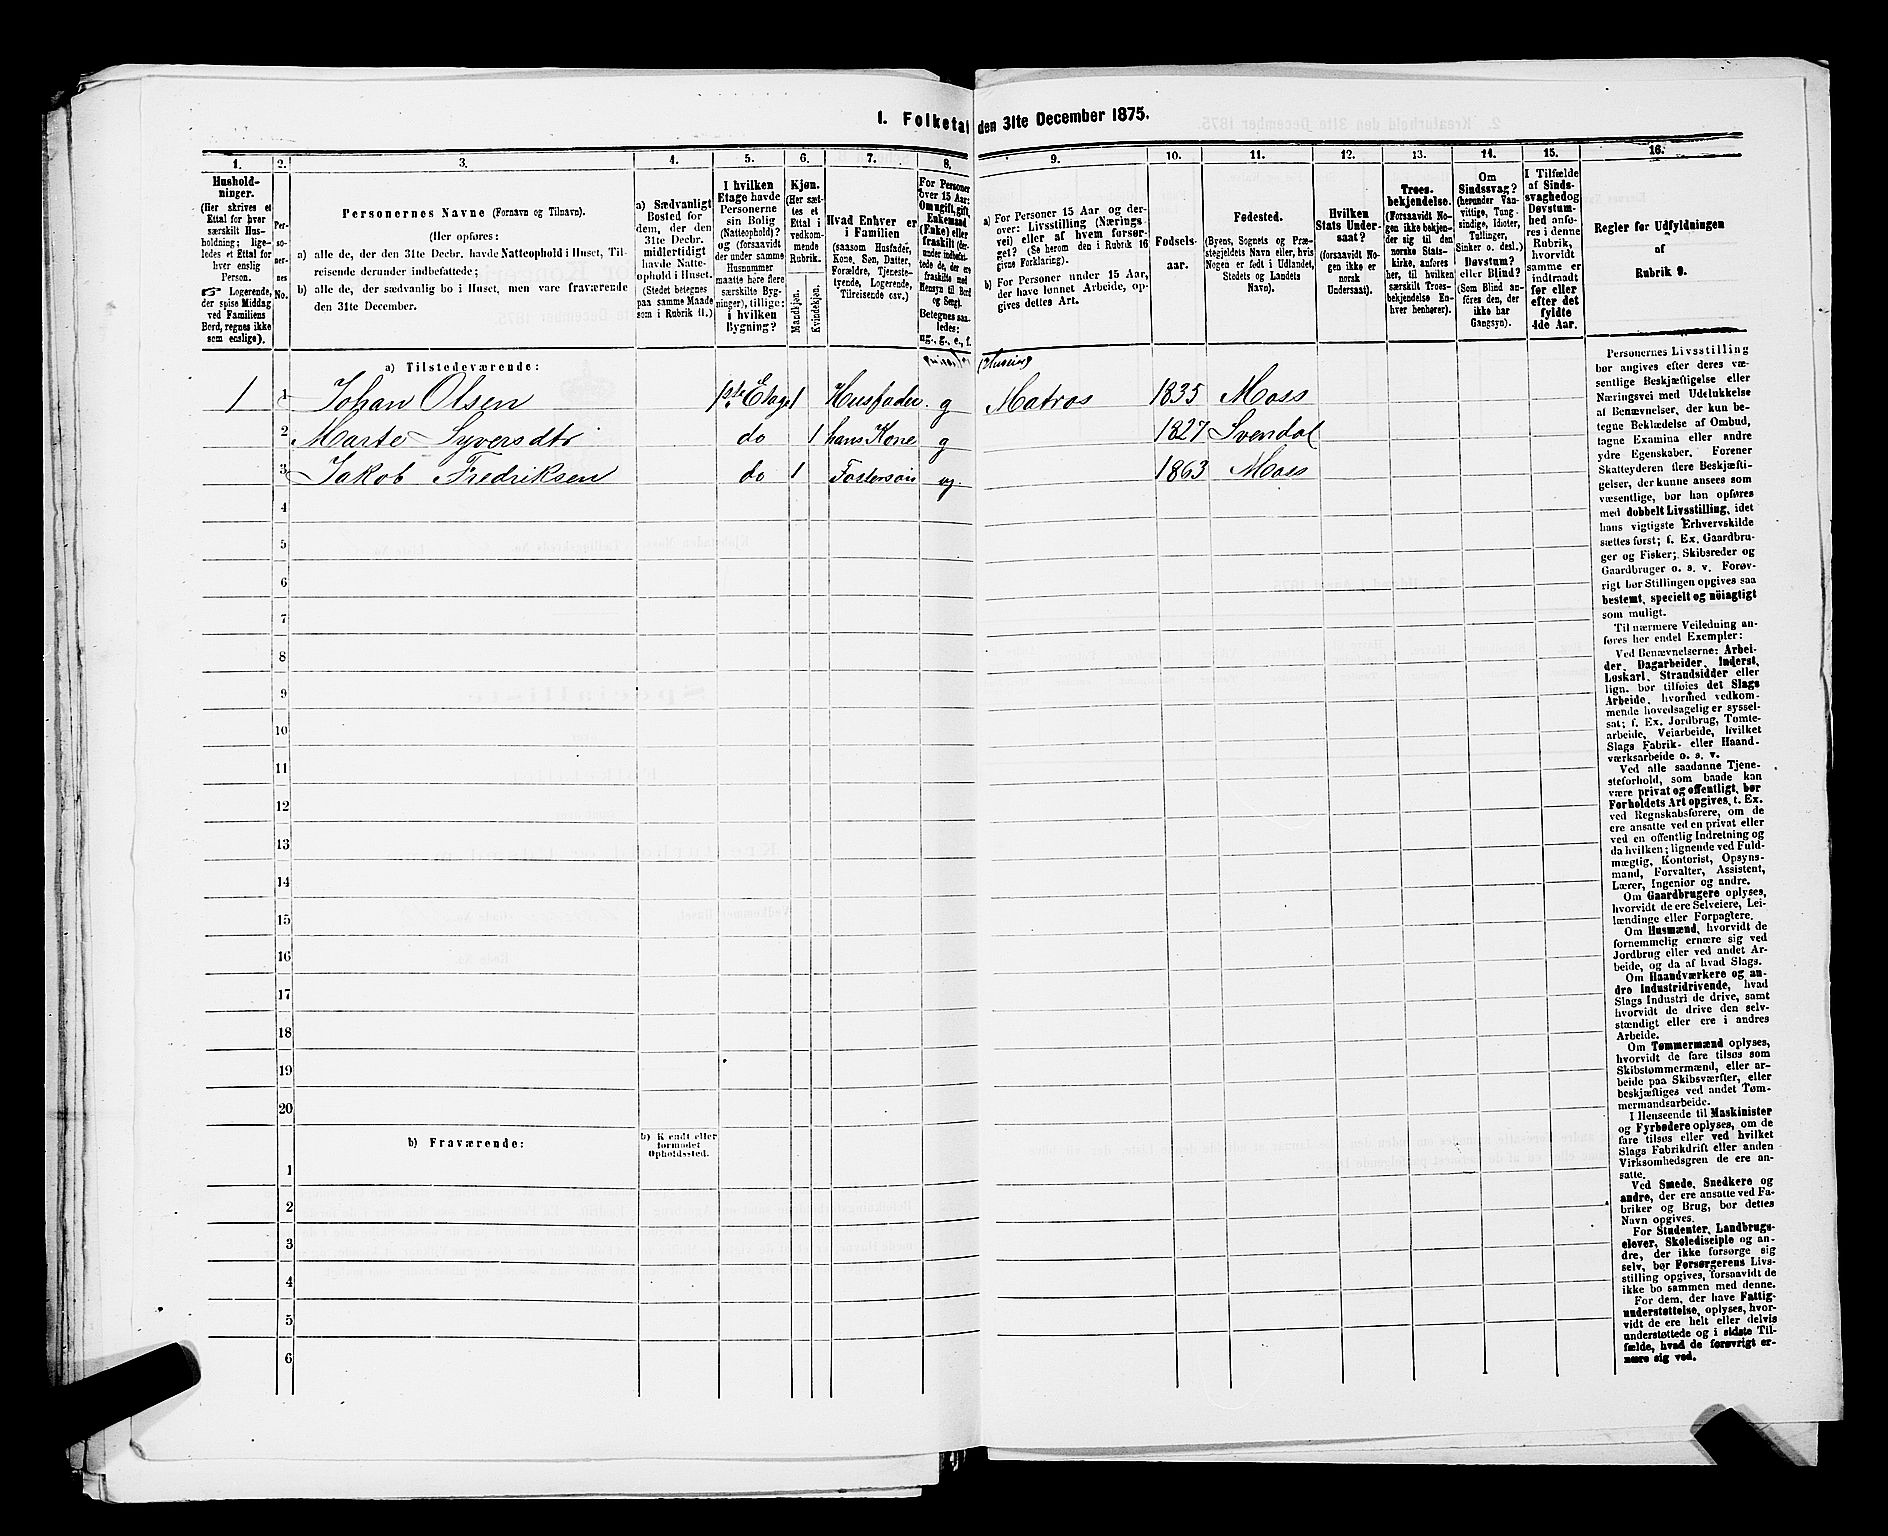 1. Folketal den 31te December 1875.
1. 2. 3. 4. 5. 6. 7. 8. 9. 10. 11. 12. 13. 14. 15. 16.
Hushold-
ninger.
(Her skrives et
Ettal for hver
særskilt Hus-
holdning; lige-
ledes et Ettal for
hver enslig
Person.
☞ Logerende,
der spise Middag
ved Familiens
Bord, regnes ikke
som enslige).
Per-
so-
ner-
nes
No.
Personernes Navne (Fornavn og Tilnavn).
(Her opføres:
a) alle de, der den 31te Decbr. havde Natteophold i Huset, Til-
reisende derunder indbefattede;
b) alle de, der sædvanlig bo i Huset, men vare fraværende
den 31te December.
a) Sædvanligt
Bosted for
dem, der den
31te Decbr.
midlertidigt
havde Natte-
ophold i Huset.
(Stedet betegnes
paa samme Maade
som i Rubrik 11.)
I hvilken
Etage havde
Personerne
sin Bolig
(Natteophold)?
og (forsaavidt
der under samme
Husnummer
maatte høre flere
særskilte Byg-
ninger), tillige:
i hvilken
Bygning?
Kjøn.
(Her sæt-
tes et
Ettal i
vedkom-
mende
Rubrik.
Mandkjøn.
Kvindekjøn.
Hvad Enhver er
i Familien
(saasom Husfader,
Kone, Søn, Datter,
Forældre, Tjeneste-
tyende, Logerende,
Tilreisende osv.)
For Personer
over 15 Aar:
Om ugift, gift,
Enkemand
(Enke) eller
fraskilt (der-
under indbefat-
tede de, der ere
fraskilte med
Hensyn til Bord
og Seng).
Betegnes saa-
ledes:
ug., g., e., f.
a) For Personer 15 Aar og der-
over: Livsstilling (Nærings-
vei) eller af hvem forsør-
get? (Se herom den i Rubrik 16
givne Forklaring).
b) For Personer under 15 Aar,
der have lønnet Arbeide, op-
gives dettes Art.
Fødsels-
aar.
Fødested.
(Byens, Sognets og Præ-
stegjeldets Navn eller, hvis
Nogen er født i Udlandet,
Stedets og Landets
Navn).
Hvilken
Stats Under-
saat?
(forsaavidt No-
gen ikke er
norsk
Undersaat).
Troes-
bekjendelse.
(Forsaavidt No-
gen ikke bekjen-
der sig til den
norske Stats-
kirke, anføres
her, til hvilken
særskilt Troes-
bekjendelse En-
hver henhører).
Om
Sindssvag?
(herunder Van-
vittige, Tung-
sindige, Idioter,
Tullinger,
Sinker o. desl.)
Døvstum?
eller Blind?
(Som Blind an-
føres den, der
ikke har
Gangsyn).
I Tilfælde
af Sinds-
svaghed og
Døvstum-
hed anfø-
res i denne
Rubrik,
hvorvidt
samme er
indtraadt
før eller
efter det
fyldte
4de Aar.
Regler for Udfyldningen
af
Rubrik 9.
a) Tilstedeværende:
1 1 Johan Olsen 1ste Etage 1 Husfader g Matros 1835 Moss
2 Marte Syversdtr do 1 hans Kone g 1827 Svendal
3 Jakob Fredriksen do 1 Fostersøn ug 1863 Moss
4
5
6
7
8
9
10
11
12
13
14
15
16
17
18
19
20
b) Fraværende:
b) Kjendt eller
formodet
Opholdssted.
1
2
3
4
5
6
Personernes Livsstilling
bør angives efter deres væ-
sentlige Beskjæftigelse eller
Næringsvei med Udelukkelse
af Benævnelser, der kun be-
tegne Beklædelse af Ombud,
tagne Examina eller andre
ydre Egenskaber. Forener
Skatteyderen flere Beskjæfti-
gelser, der kunne ansees som
væsentlige, bør han opføres
med dobbelt Livsstilling, idet
hans vigtigste Erhvervskilde
sættes først; f. Ex. Gaardbru-
ger og Fisker; Skibsreder og
Gaardbruger o. s. v. Forøv-
rigt bør Stillingen opgives saa
bestemt, specielt og nøiagtigt
som muligt.
Til nærmere Veiledning an-
føres her endel Exempler:
Ved Benævnelserne: Arbei-
der, Dagarbeider, Inderst,
Løskarl, Strandsidder eller
lign. bør tilføies det Slags
Arbeide, hvormed vedkom-
mende hovedsagelig er syssel-
sat; f. Ex. Jordbrug, Tomte-
arbeide, Veiarbeide, hvilket
Slags Fabrik- eller Haand-
værksarbeide o. s. v.
Ved alle saadanne Tjene-
steforhold, som baade kan
være privat og offentligt, bør
Forholdets Art opgives, f. Ex.
ved Regnskabsførere, om de
ere ansatte ved en privat eller
ved en offentlig Indretning og
da hvilken; lignende ved Fuld-
mægtig, Kontorist, Opsyns-
mand, Forvalter, Assistent,
Lærer, Ingeniør og andre.
Om Gaardbrugere oplyses,
hvorvidt de ere Selveiere, Lei-
lændinge eller Forpagtere.
Om Husmænd, hvorvidt de
fornemmelig ernære sig ved
Jordbrug eller ved andet Ar-
beide, og da af hvad Slags.
Om Haandværkere og an-
dre Industridrivende, hvad
Slags Industri de drive, samt
hvorvidt de drive den selv-
stændigt eller ere i andres
Arbeide.
Om Tømmermænd oplyses,
hvorvidt de fare tilsøs som
Skibstømmermænd, eller ar-
beide paa Skibsværfter, eller
beskjæftiges ved andet Tøm-
mermandsarbeide.
I Henseende til Maskinister
og Fyrbødere oplyses, om de
fare tilsøs eller ved hvilket
Slags Fabrikdrift eller anden
Virksomhedsgren de ere an-
satte.
Ved Smede, Snedkere og
andre, der ere ansatte ved Fa-
briker og Brug, bør dettes
Navn opgives.
For Studenter, Landbrugs-
elever, Skoledisciple og an-
dre, der ikke forsørge sig
selv, bør Forsørgerens Livs-
stilling opgives, forsaavidt de
ikke bo sammen med denne.
For dem, der have Fattig-
understøttelse, oplyses, hvor-
vidt de ere helt eller delvis
understøttede og i sidste Til-
fælde, hvad de forøvrigt er-
nære sig ved.